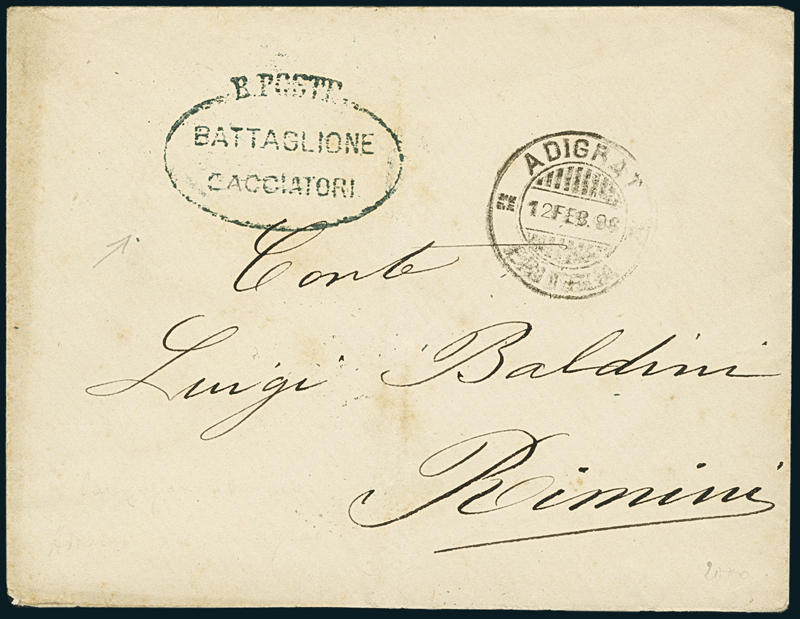 R. POSTE
BATTAGLIONE
CACCIATORI
ADIGRAT
12 FEB. 96
Conte
Luigi Baldini
Rimini